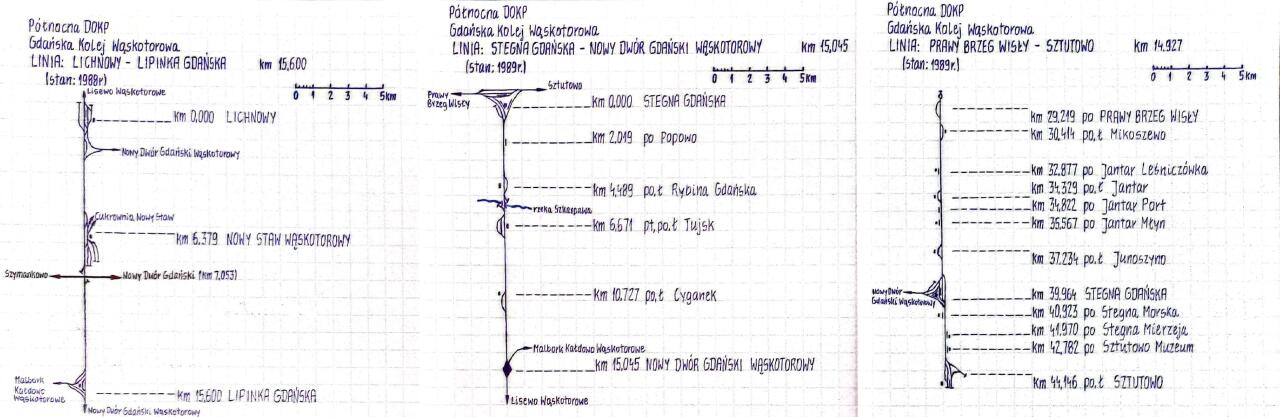 Północna DOKP
Gdańska Kolej Wąskotorowa
LINIA: LICHNOWY - LIPINKA GDAŃSKA km 15,600
(stan: 1988r.)
0 1 2 3 4 5km
Lisewo Wąskotorowe
km 0,000 LICHNOWY
Nowy Dwór Gdański Wąskotorowy
Cukrownia Nowy Staw
km 6,379 NOWY STAW WĄSKOTOROWY
Szymankowo
Nowy Dwór Gdański (km 7,053)
Malbork
Kałdowo
Wąskotorowe
km 15,600 LIPINKA GDAŃSKA
Nowy Dwór Gdański Wąskotorowy
Północna DOKP
Gdańska Kolej Wąskotorowa
LINIA: STEGNA GDAŃSKA - NOWY DWÓR GDAŃSKI WĄSKOTOROWY km 15,045
(stan: 1989r.)
0 1 2 3 4 5km
Prawy
Brzeg Wisły
Sztutowo
km 0,000 STEGNA GDAŃSKA
km 2,019 po Popowo
km 4,489 po,ł Rybina Gdańska
rzeka Szkarpawa
km 6,671 pt,po,ł Tujsk
km 10,727 po,ł Cyganek
Malbork Kałdowo Wąskotorowe
km 15,045 NOWY DWÓR GDAŃSKI WĄSKOTOROWY
Lisewo Wąskotorowe
Północna DOKP
Gdańska Kolej Wąskotorowa
LINIA: PRAWY BRZEG WISŁY - SZTUTOWO km 14,927
(stan: 1989r.)
0 1 2 3 4 5km
km 29,219 po PRAWY BRZEG WISŁY
km 30,414 po,ł Mikoszewo
km 32,877 po Jantar Leśniczówka
km 34,329 po,ł Jantar
km 34,822 po Jantar Port
km 35,567 po Jantar Młyn
km 37,234 po,ł Junoszyno
Nowy Dwór
Gdański Wąskotorowy
km 39,964 STEGNA GDAŃSKA
km 40,923 po Stegna Morska
km 41,970 po Stegna Mierzeja
km 42,782 po Sztutowo Muzeum
km 44,146 po,ł SZTUTOWO